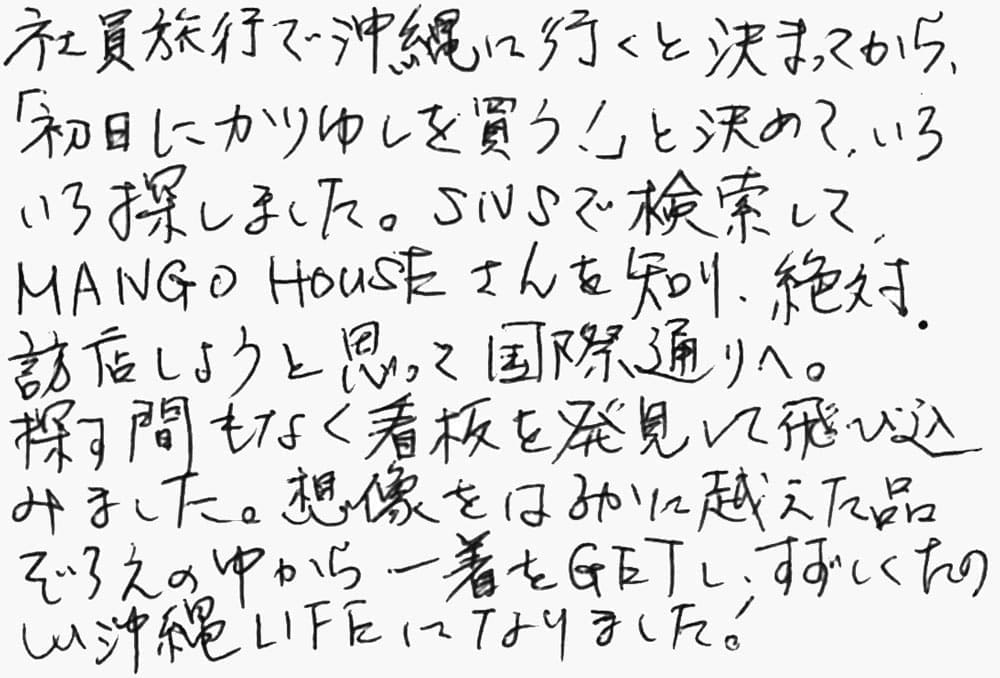 社員旅行で沖縄に行くと決まってから、
「初日にかりゆしを買う!」と決めて、いろ
いろ探しました。SNSで検索して、
MANGO HOUSEさんを知り、絶対
訪店しようと思って国際通りへ。
探す間もなく看板を発見して飛び込
みました。想像をはるかに越えた品
ぞろえの中から一着をGETし、すずしくたの
しい沖縄LIFEになりました!